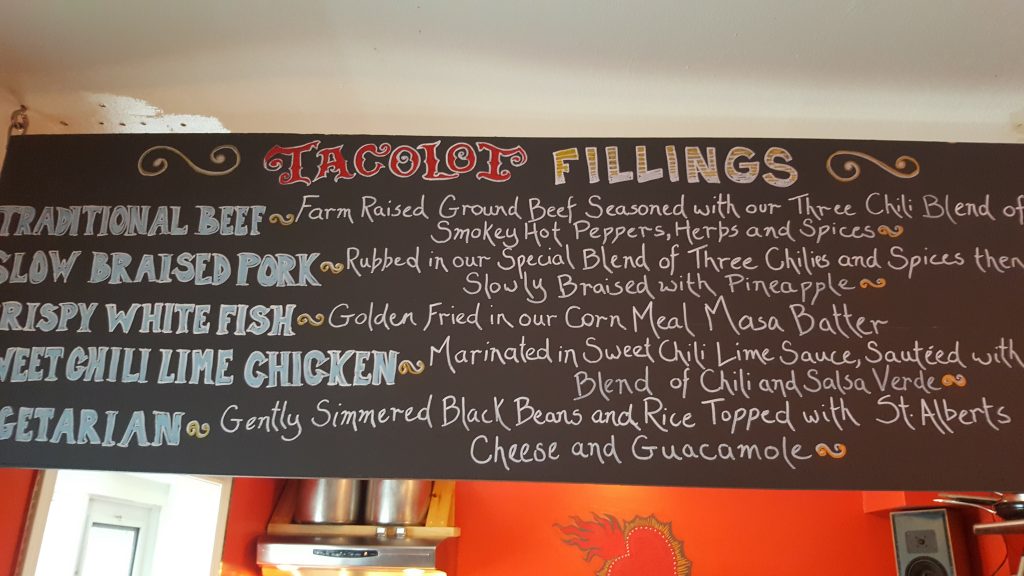 TACOLOT FILLINGS
TRADITIONAL BEEF Farm Raised Ground Beef Seasoned with our Three Chili Blend of
Smokey Hot Peppers, Herbs and Spices
SLOW BRAISED PORK Rubbed in our Special Blend of Three Chilies and Spices then
Slowly Braised with Pineapple
RISPY WHITE FISH Golden Fried in our Corn Meal Masa Batter
WEET CHILI LIME CHICKEN Marinated in Sweet Chili Lime Sauce, Sautéed with
Blend of Chili and Salsa Verde
GETARIAN Gently Simmered Black Beans and Rice Topped with St. Alberts
Cheese and Guacamole